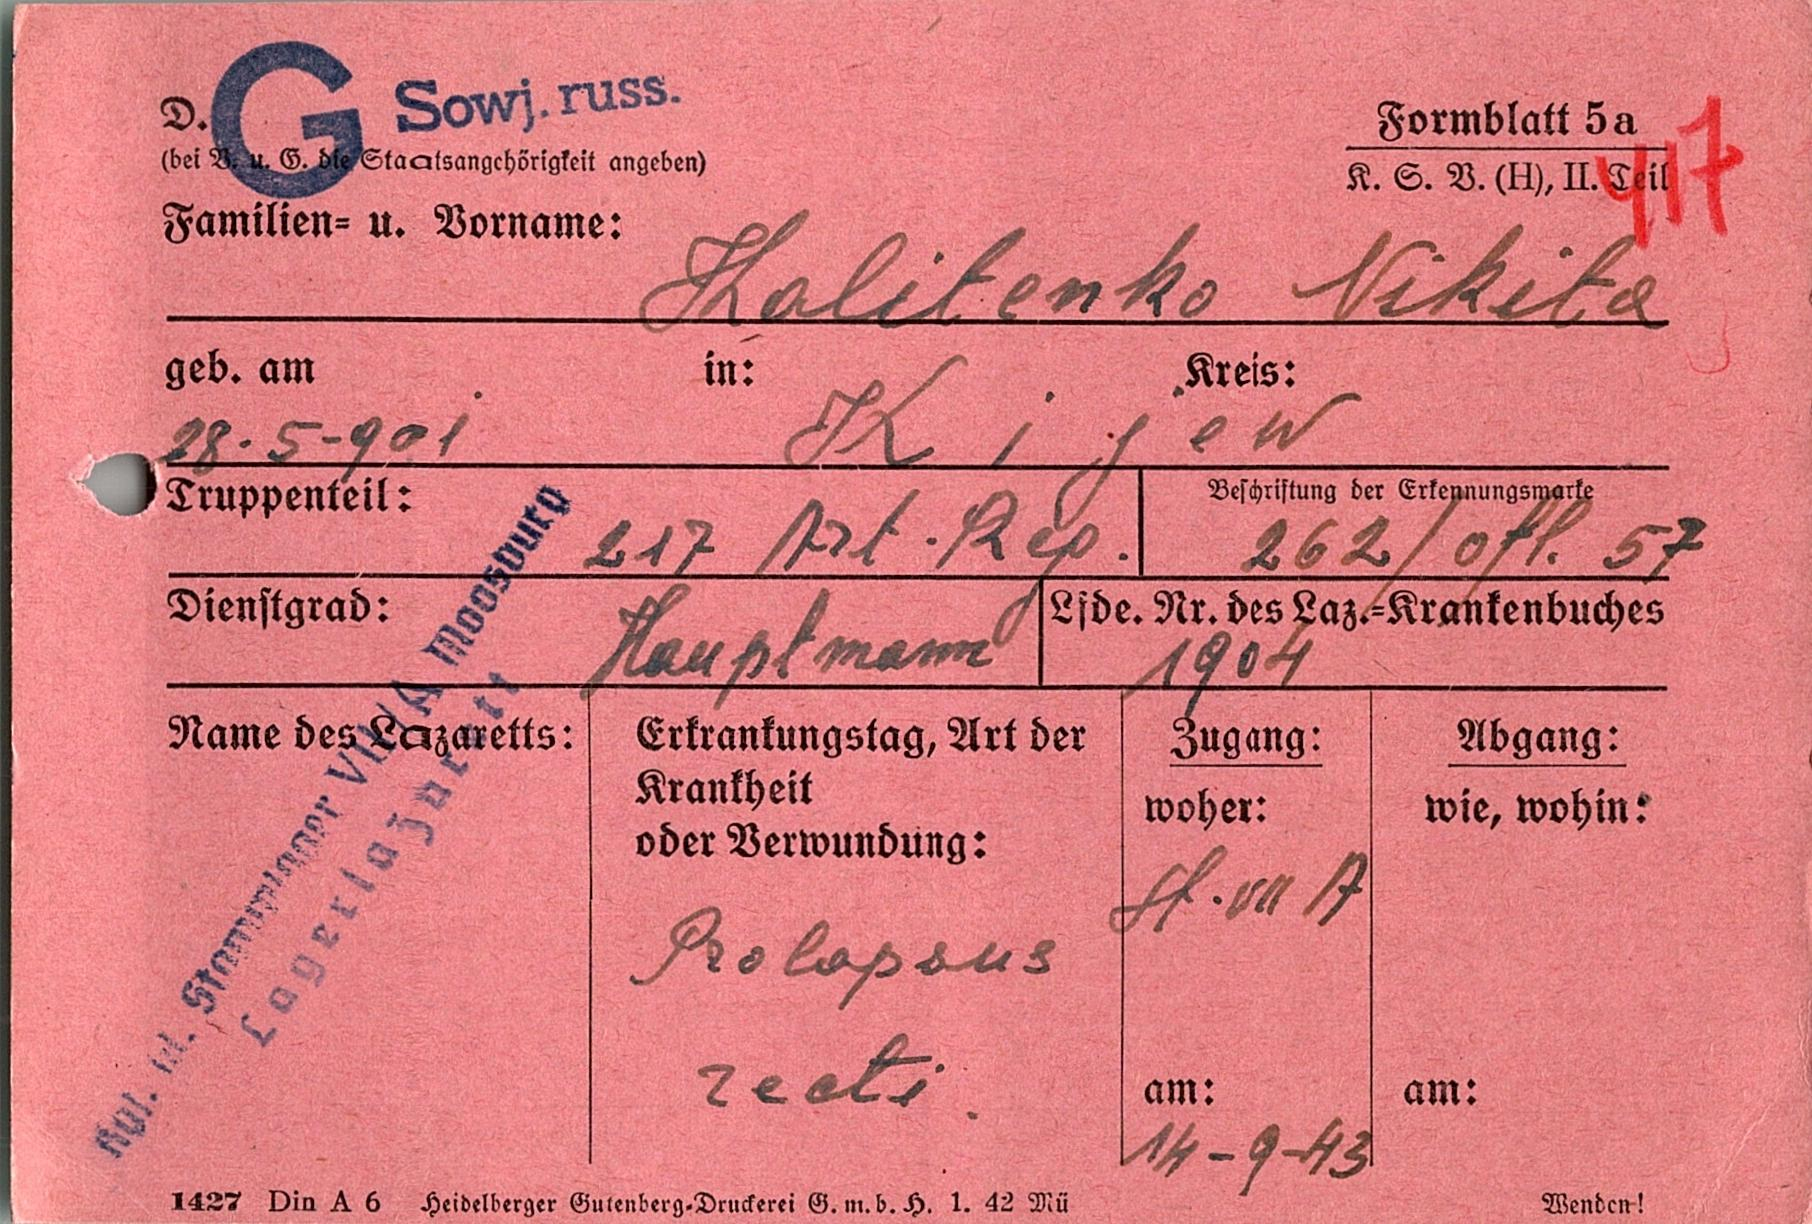 D. G Sowj. russ.
(bei V. u. G. die Staatsangehörigkeit angeben)
Formblatt 5a
K. S. V. (H), II. Teil
417
Familien- u. Vorname:
Kalitenko Nikita
geb. am in: Kreis:
28.5-901 Kijew
Truppenteil: 217 Art. Reg.
Beschriftung der Erkennungsmarke
262/ofl. 57
Dienstgrad: Hauptmann
Lfde. Nr. des Laz.-Krankenbuches
1904
Name des Lazaretts:
Stammlager VII/A Moosburg
Lagerlazarett
Erkrankungstag, Art der
Krankheit
oder Verwundung:
Prolapsus
recti.
Zugang:
woher:
St. VII A
am:
14-9-43
Abgang:
wie, wohin:
am:
1427 Din A 6 Heidelberger Gutenberg-Druckerei G. m. b. H. 1. 42 Mü
Wenden!